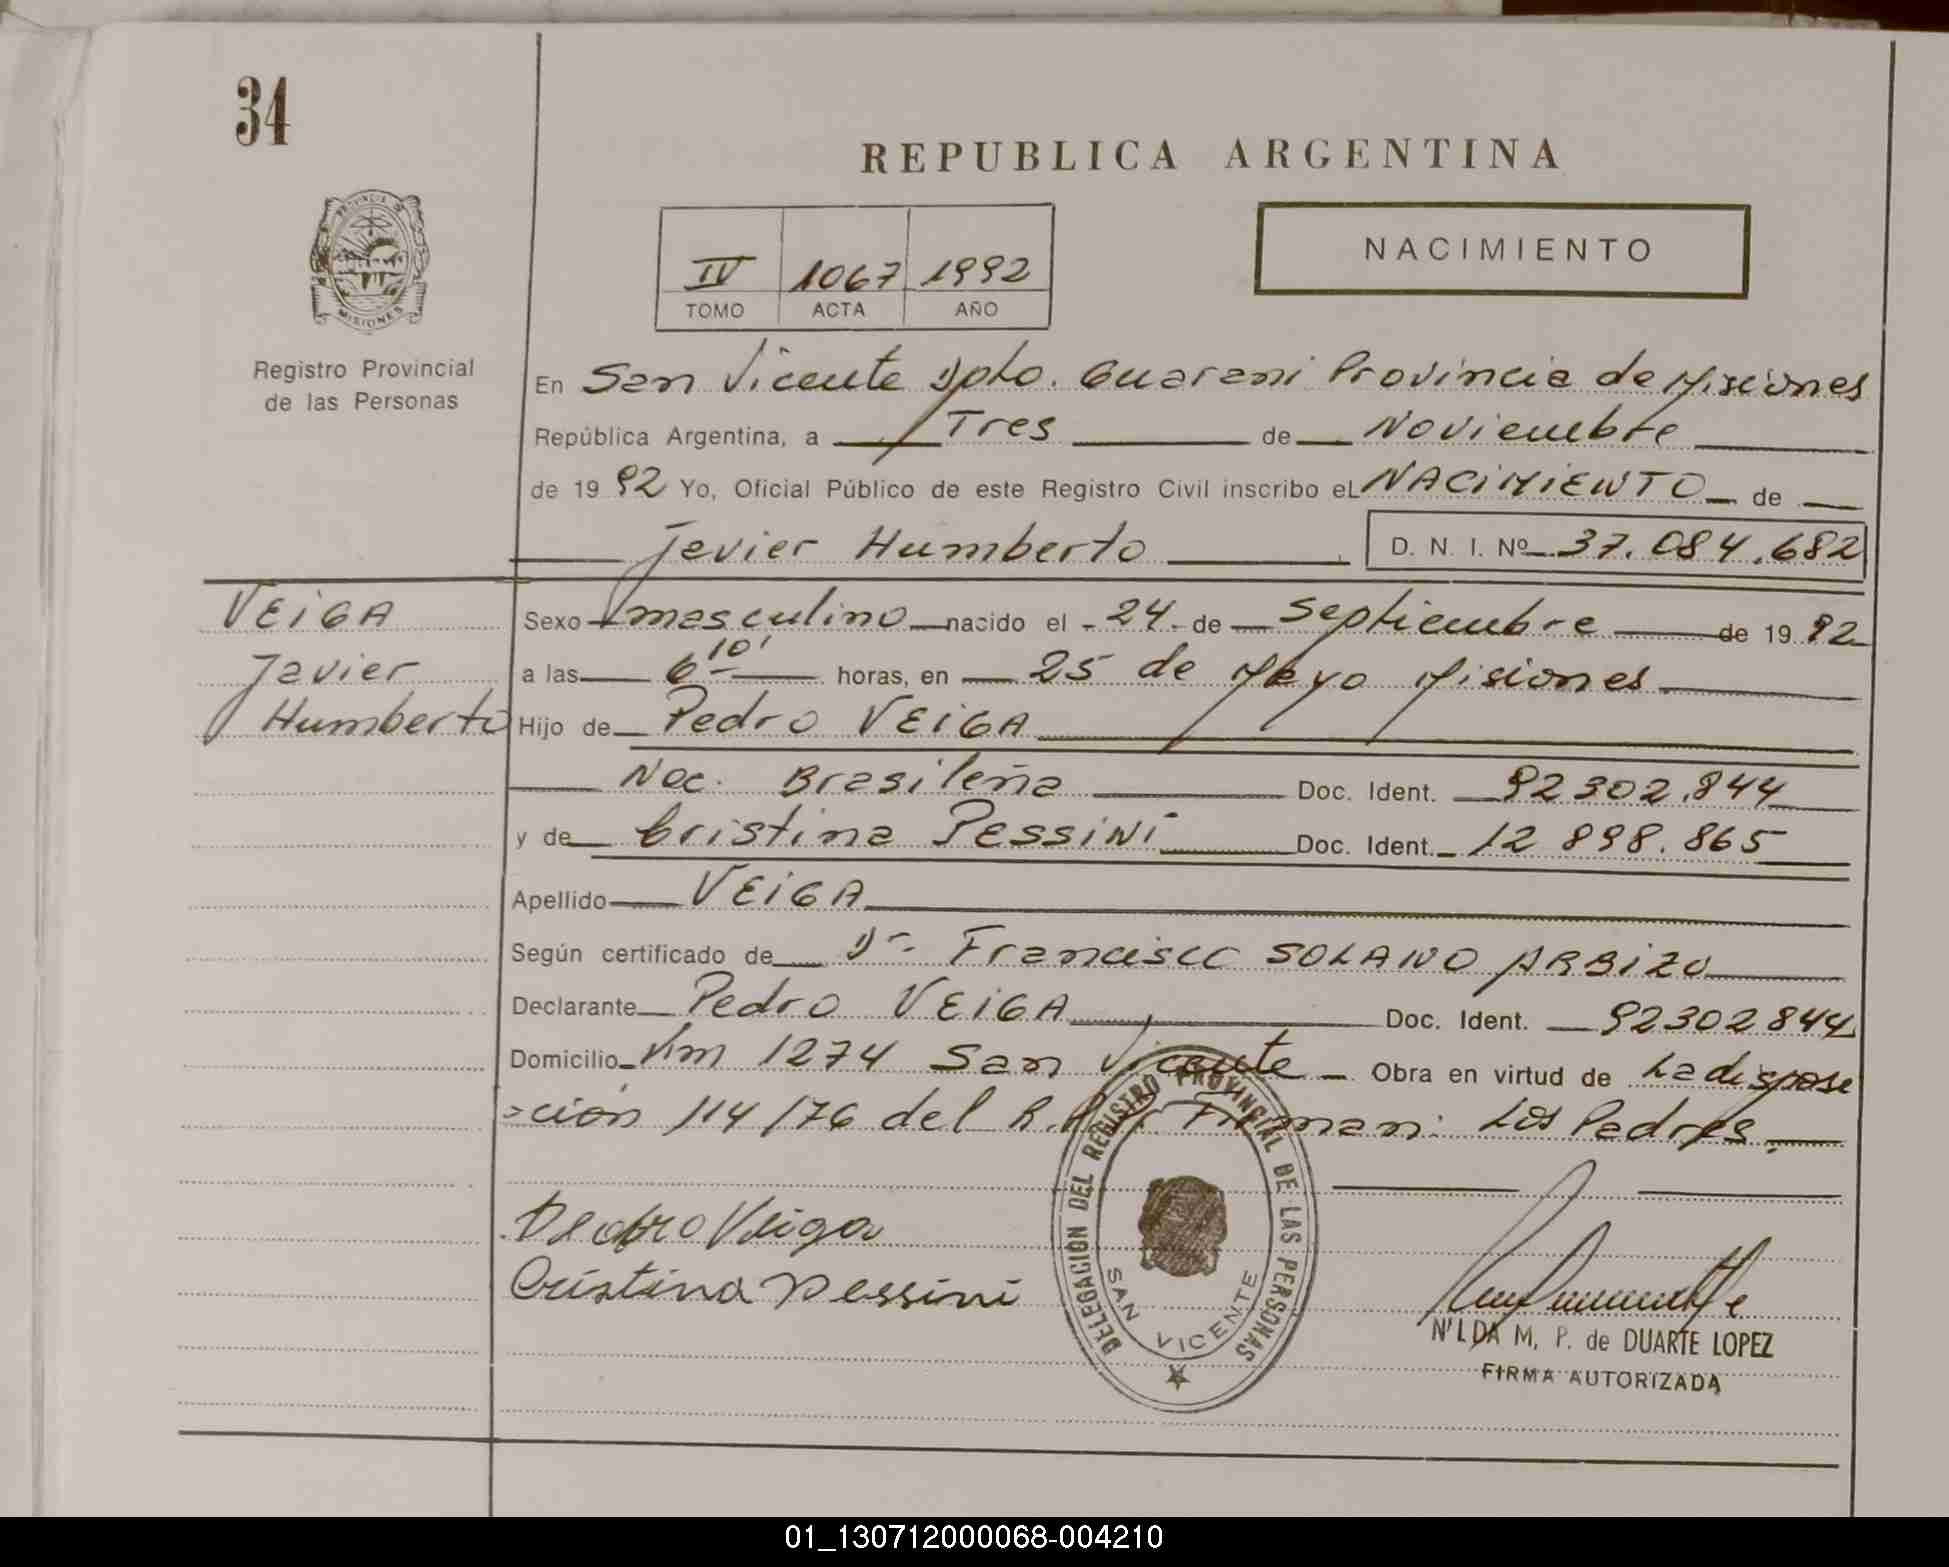 34
REPUBLICA ARGENTINA
PROVINCIA DE
MISIONES
NACIMIENTO
IV 1067 1992
TOMO ACTA AÑO
Registro Provincial
de las Personas
En San Vicente Dpto. Guarani Provincia de Misiones
República Argentina, a Tres de Noviembre
de 19 92 Yo, Oficial Público de este Registro Civil inscribo eL NACIMIENTO de
Javier Humberto D. N. I. Nº 37.084.682
VEIGA
Javier
Humberto
Sexo masculino nacido el 24 de Septiembre de 19 92
a las 6 10' horas, en 25 de Mayo Misiones
Hijo de Pedro VEIGA
Nac. Brasileña Doc. Ident. 92302.844
y de Cristina PESSINI Doc. Ident. 12 898.865
Apellido VEIGA
Según certificado de Dr. Francisco SOLANO ARBIZU
Declarante Pedro VEIGA Doc. Ident. 92302844
Domicilio Km 1274 San Vicente Obra en virtud de La disposi
ción 114/76 del Firman: Los Padres
Pedro Veiga
Cristina Pessini
DELEGACION DEL REGISTRO PROVINCIAL DE LAS PERSONAS
SAN VICENTE
N'LDA M. P. de DUARTE LOPEZ
FIRMA AUTORIZADA
01_130712000068-004210